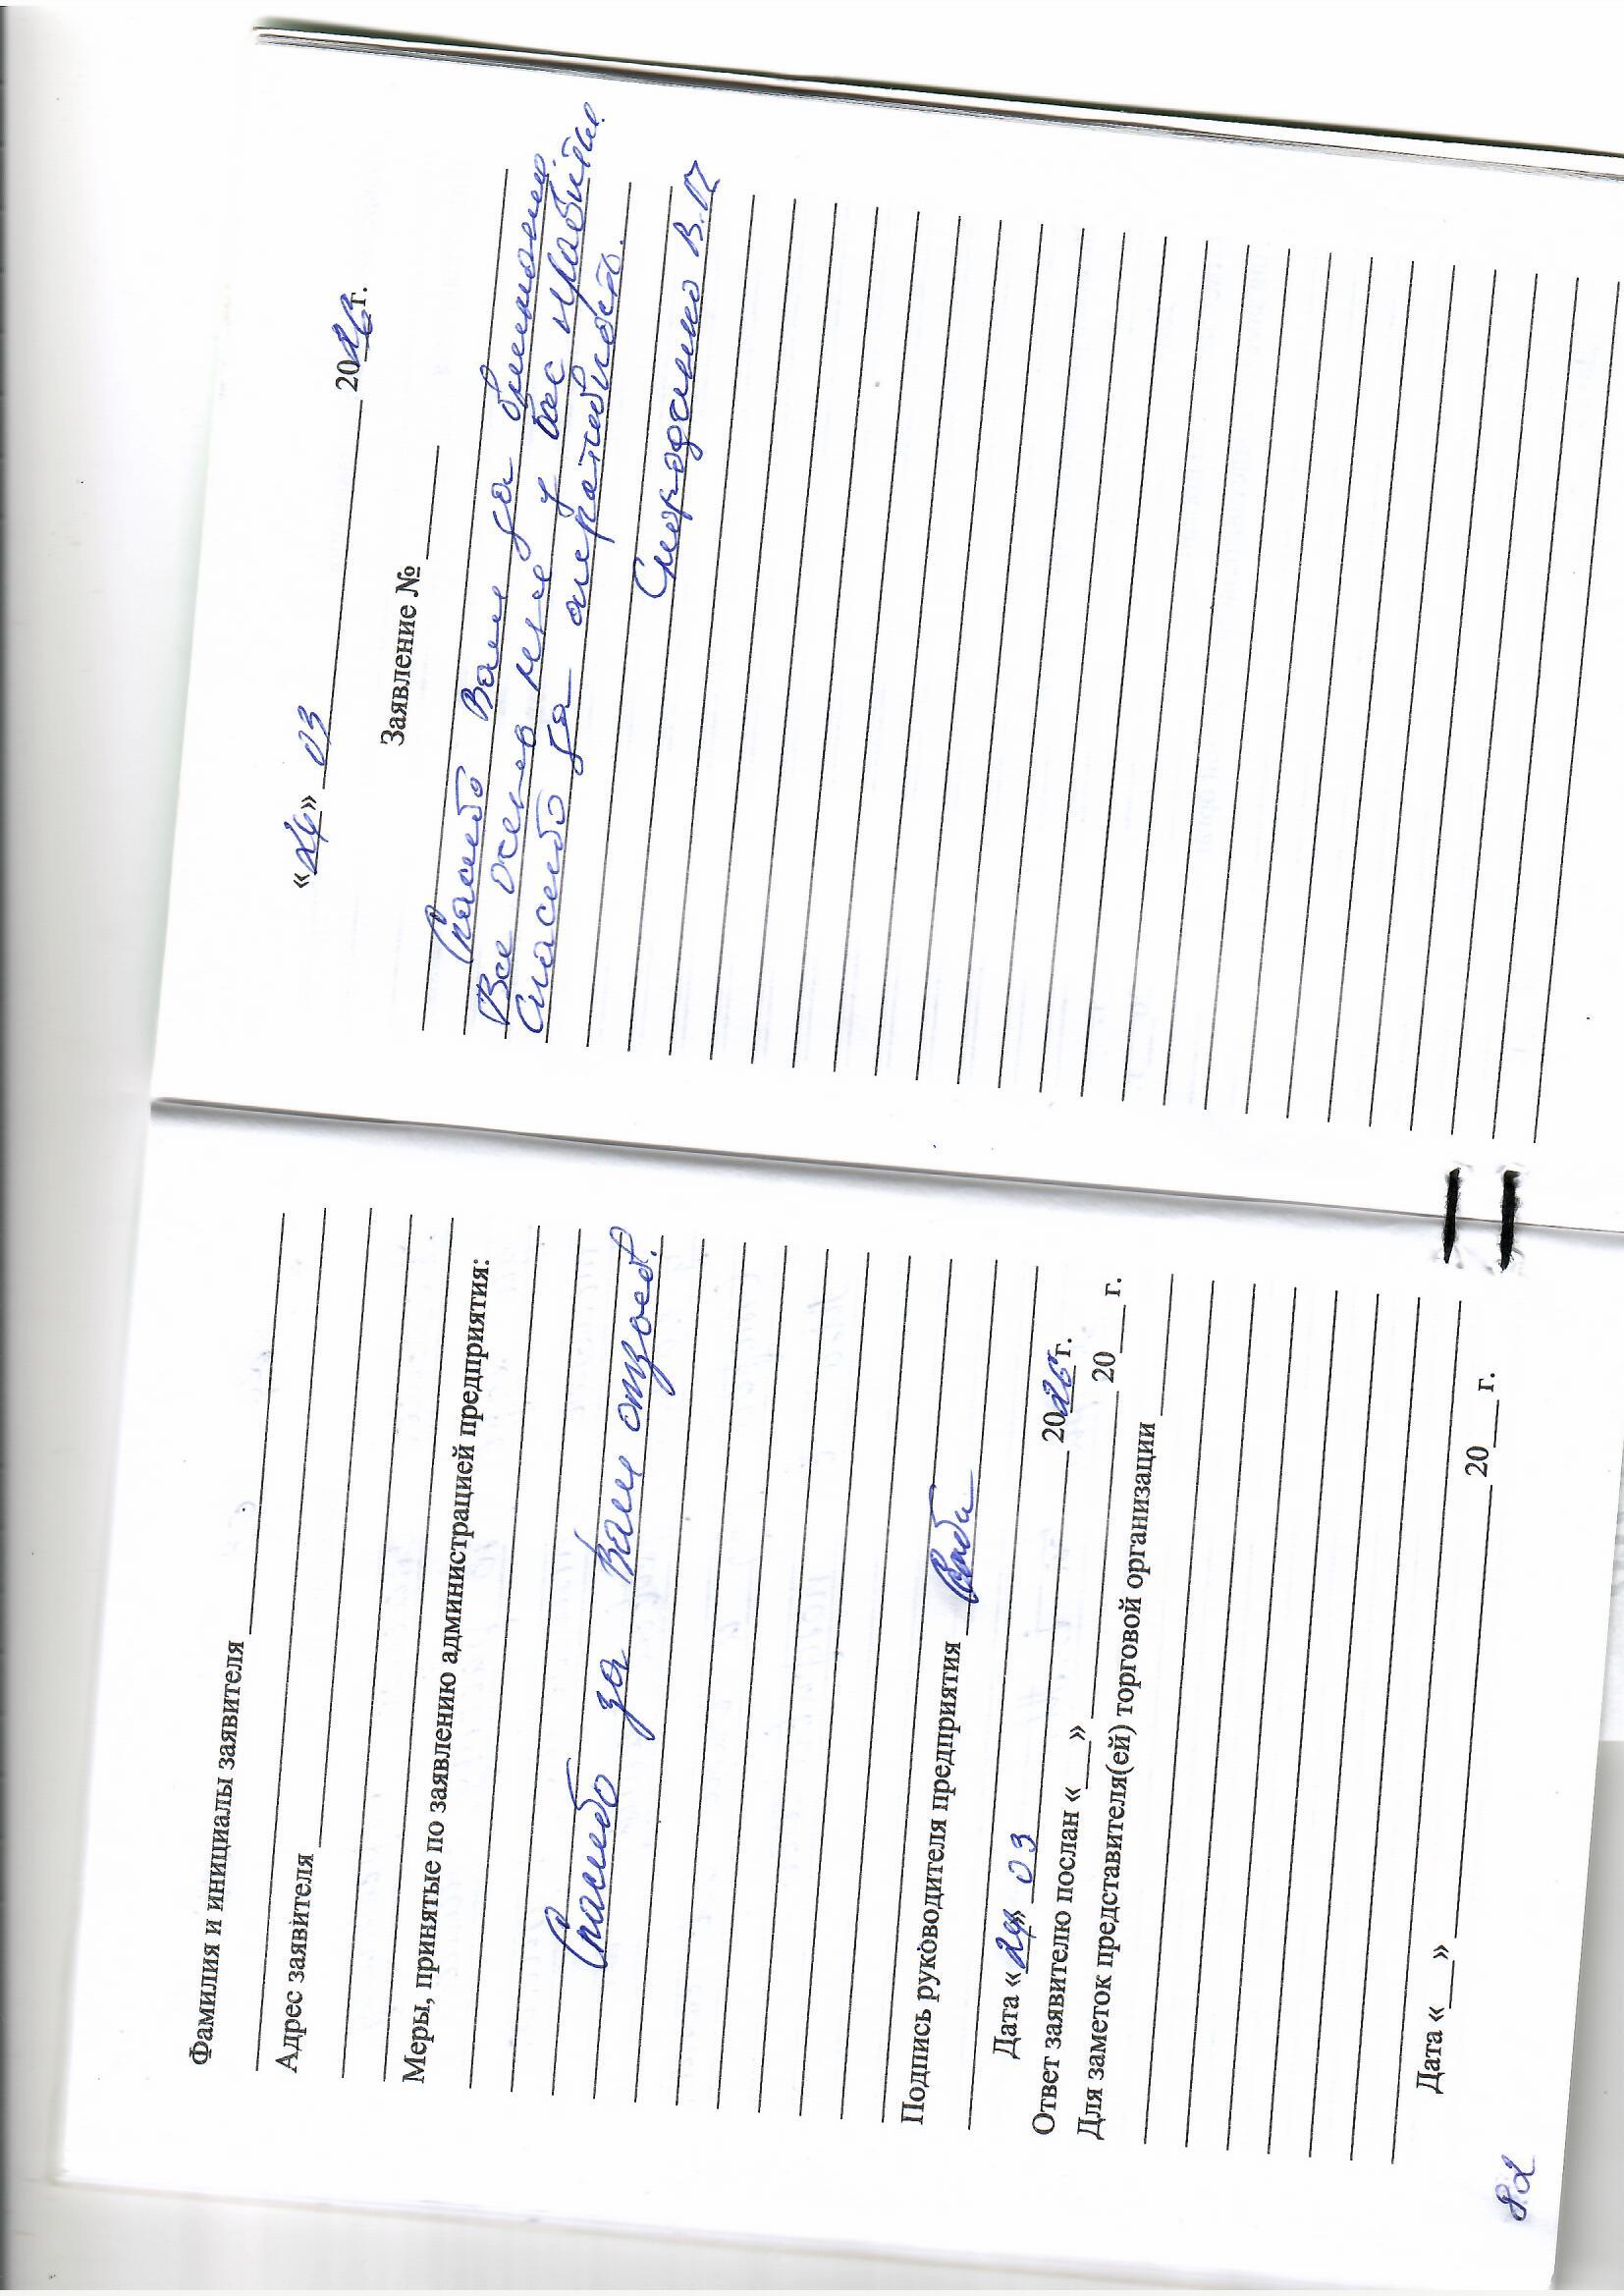 Фамилия и инициалы заявителя
Адрес заявителя
Меры, принятые по заявлению администрацией предприятия:
Спасибо за Ваш отзыв.
Подпись руководителя предприятия
Дата «24» 03 2026 г.
Ответ заявителю послан «__» 20__ г.
Для заметок представителя(ей) торговой организации
Дата «__» 20__ г.
82
«24» 03 2026 г.
Заявление №
Спасибо Вам за внимание.
Все очень мне у вас нравиться.
Спасибо за оперативность.
Смородино В.П